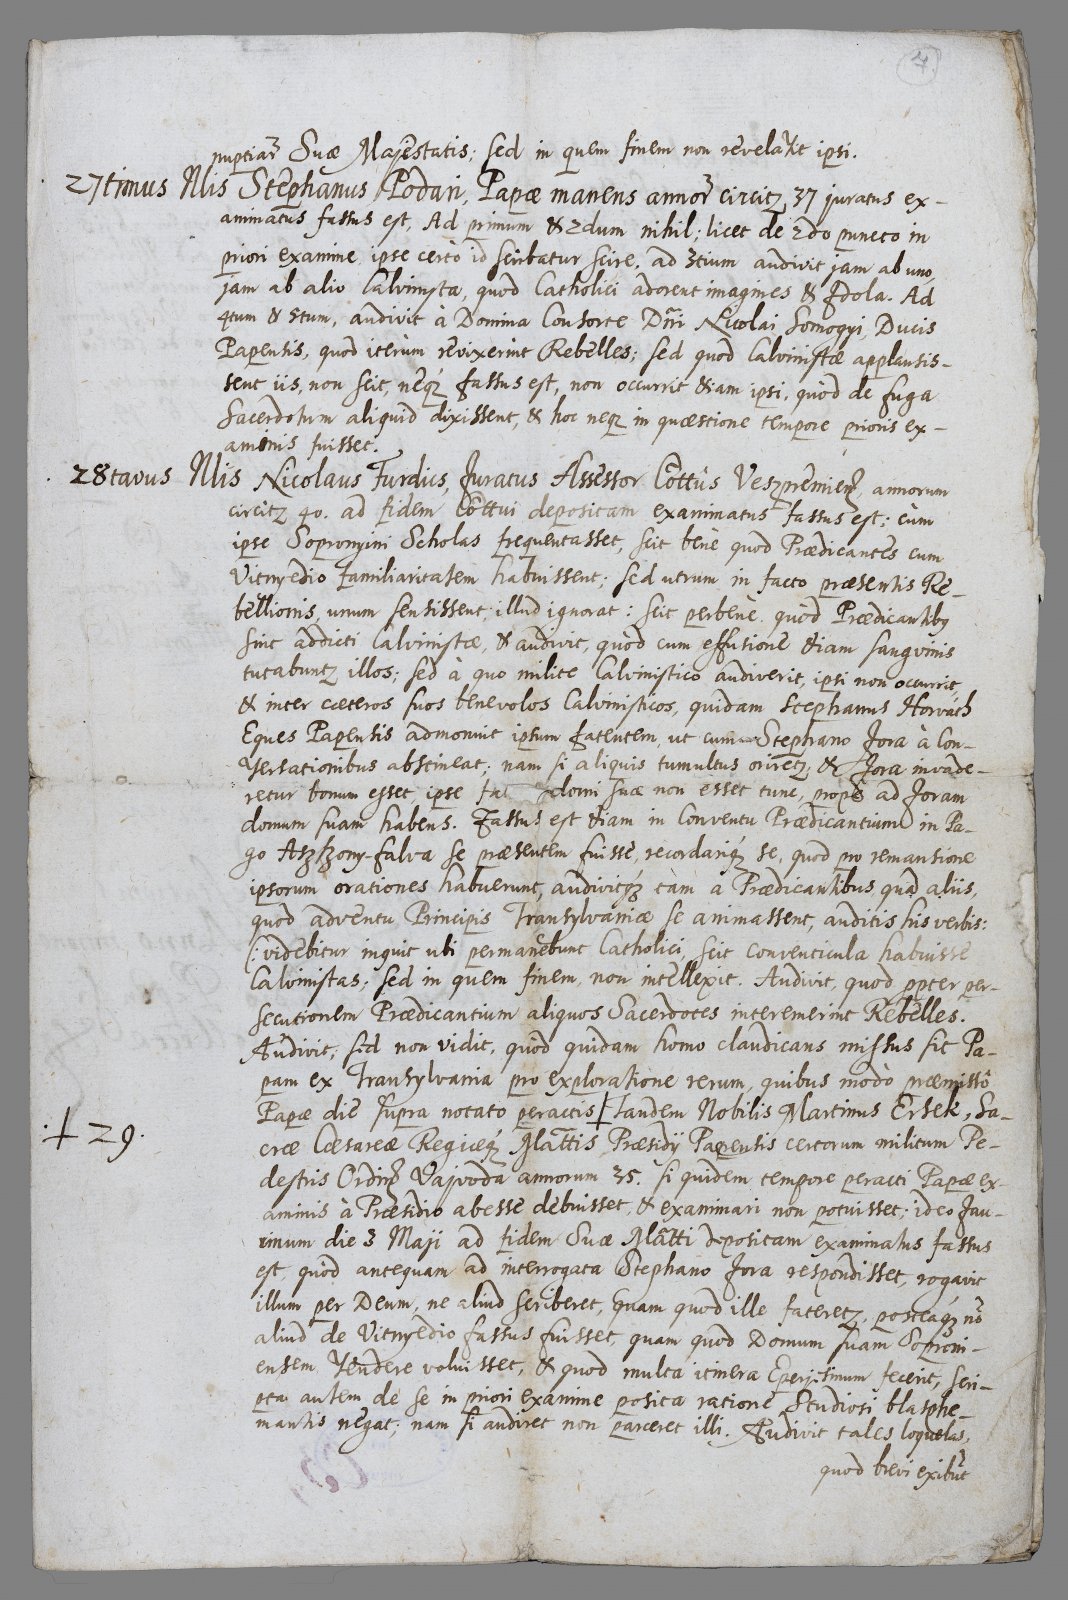 4.
nuptiar Suæ Majestatis; sed in quem finem non revelavit ipsi.
27timus Nlis Stephanus Podari, Papæ manens annor circitz 37 juratus ex-
aminatus fassus est, Ad primum & 2dum nihil; licet de 2do puncto in
priori examine ipse certò id scribatur scire, ad 3tium audivit jam ab uno,
jam ab alio Calvinista, quod Catholici adorent imagines & Idola. Ad
4tum & 5tum, audivit à Domina Consorte Dni Nicolai Somogyi, Ducis
Papensis, quod iterùm revixerint Rebelles; sed quod Calvinistæ applausis-
sent iis, non scit, neqz fassus est, non occurrit etiam ipsi, quòd de fuga
Sacerdotum aliquid dixissent, & hoc neqz in quæstione tempore prioris ex-
aminis fuisset.
28tavus Nlis Nicolaus Furdics, Juratus Assessor Cottûs Veszpremienz, annorum
circitz 40. ad fidem Cottui depositam examinatus fassus est; cùm
ipse Sopronyini Scholas frequentasset, scit benè quod Prædicantes cum
Vitnyedio familiaritatem habuissent; sed utrum in facto præsentis Re-
bellionis, unum sensissent, illud ignorat: scit perbenè quòd Prædicantibus
sint addicti Calvinistæ, & audivit, quòd cum effusione etiam sangvinis
tutabuntz illos; sed à quo milite Calvinistico audiverit, ipsi non occurrit,
& inter cæteros suos benevolos Calvinisticos, quidam Stephanus Horvách
Eques Papensis admonuit ipsum fatentem, ut cum Stephano Jora à Con-
versationibus abstineat; nam si aliquis tumultus oriretz, & Jora invade-
retur bonum esset, ipse domi suæ non esset tunc, propè ad Joram
domum suam habens. Fassus est etiam in Conventu Prædicantium in Pa-
go Aszszony-falva se præsentem fuisse, recordariqz se, quod pro remansione
ipsorum orationes habuerunt, audivitqz tàm a Prædicantibus quàm aliis,
quod adventu Principis Transylvaniæ se animassent, auditis his verbis:
(: videbitur inquit ubi permanebunt Catholici, scit conventicula habuisse
Calvinistas; sed in quem finem, non intellexit. Audivit, quod ppter per-
secutionem Prædicantium aliquos Sacerdotes interemerint Rebelles.
Audivit, sed non vidit, quòd quidam homo claudicans missus sit Pa-
pam ex Transylvania pro exploratione rerum, quibus modò præmissô
Papæ die supra notato peractis, + tandem Nobilis Martinus Ersek, Sa-
+ 29. cræ Cæsareæ Regiæqz Mattis Præsidy Papensis certorum militum Pe-
destris Ordinz Vajvoda annorum 35. siquidem tempore peracti Papæ ex-
aminis à Præsidio abesse debuisset, & examinari non potuisset; ideo Jau-
rinum die 3 Maji ad fidem Suæ Matti depositam examinatus fassus
est, quòd antequam ad interrogata Stephano Jora respondisset, rogavit
illum per Deum, ne aliud scriberet, quam quod ille fateretz, posteaqz nò
aliud de Vitnyedio fassus fuisset, quam quod Domum suam Soproni-
ensem vendere voluisset, & quod multa itinera Eperjesinum fecerit, scri-
pta autem de se in priori examine posita ratione Studiosi blasphe-
mantis negat; nam si audiret non parceret illi. Audivit tales loquelas,
quod brevi exibut